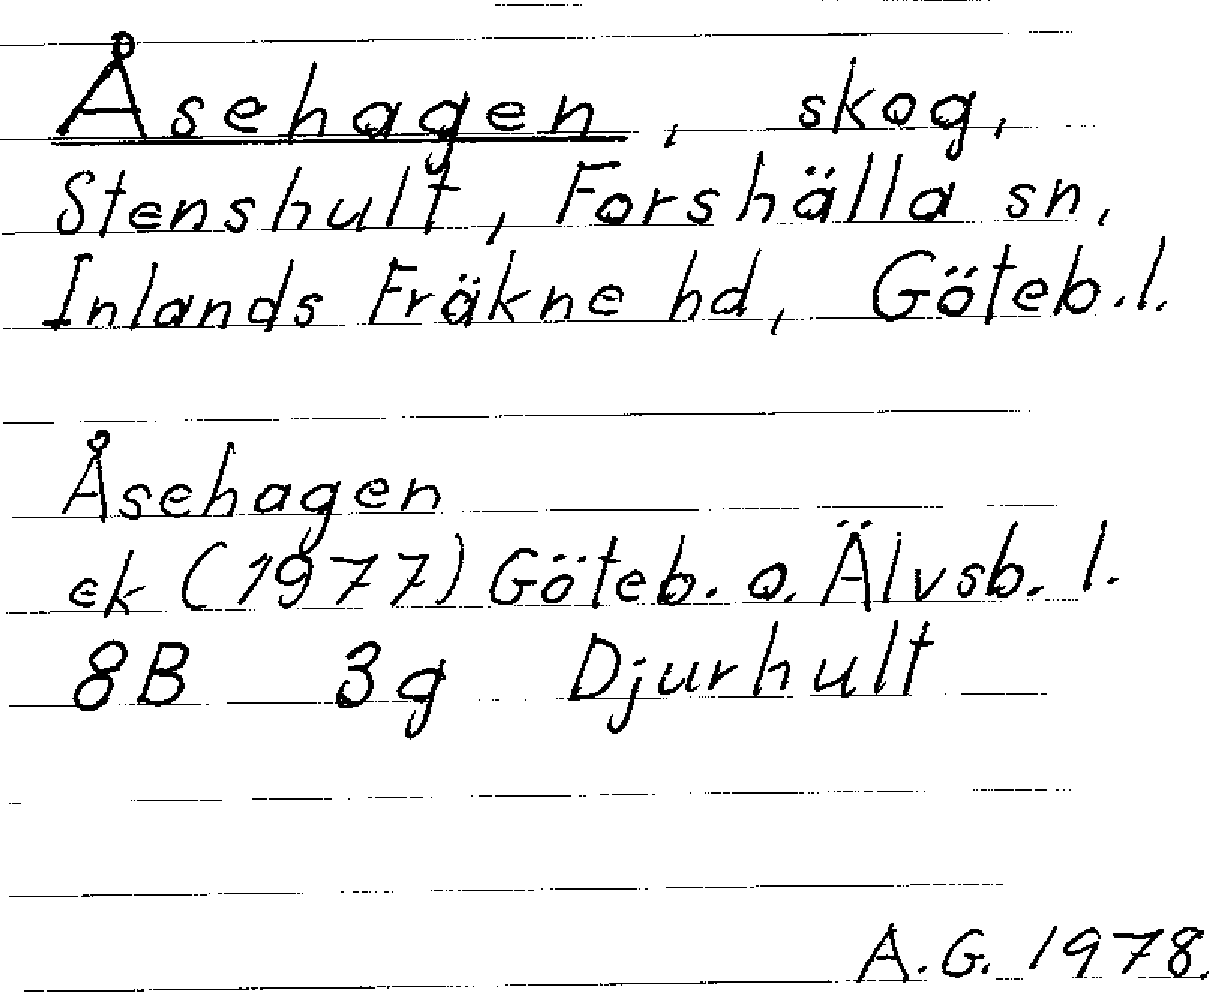 Åsehagen, skog,
Stenshult, Forshälla sn,
Inlands Fräkne hd, Göteb.l.
Åsehagen
ek (1977) Göteb. o. Älvsb. l.
8B 3g Djurhult
A.G. 1978.